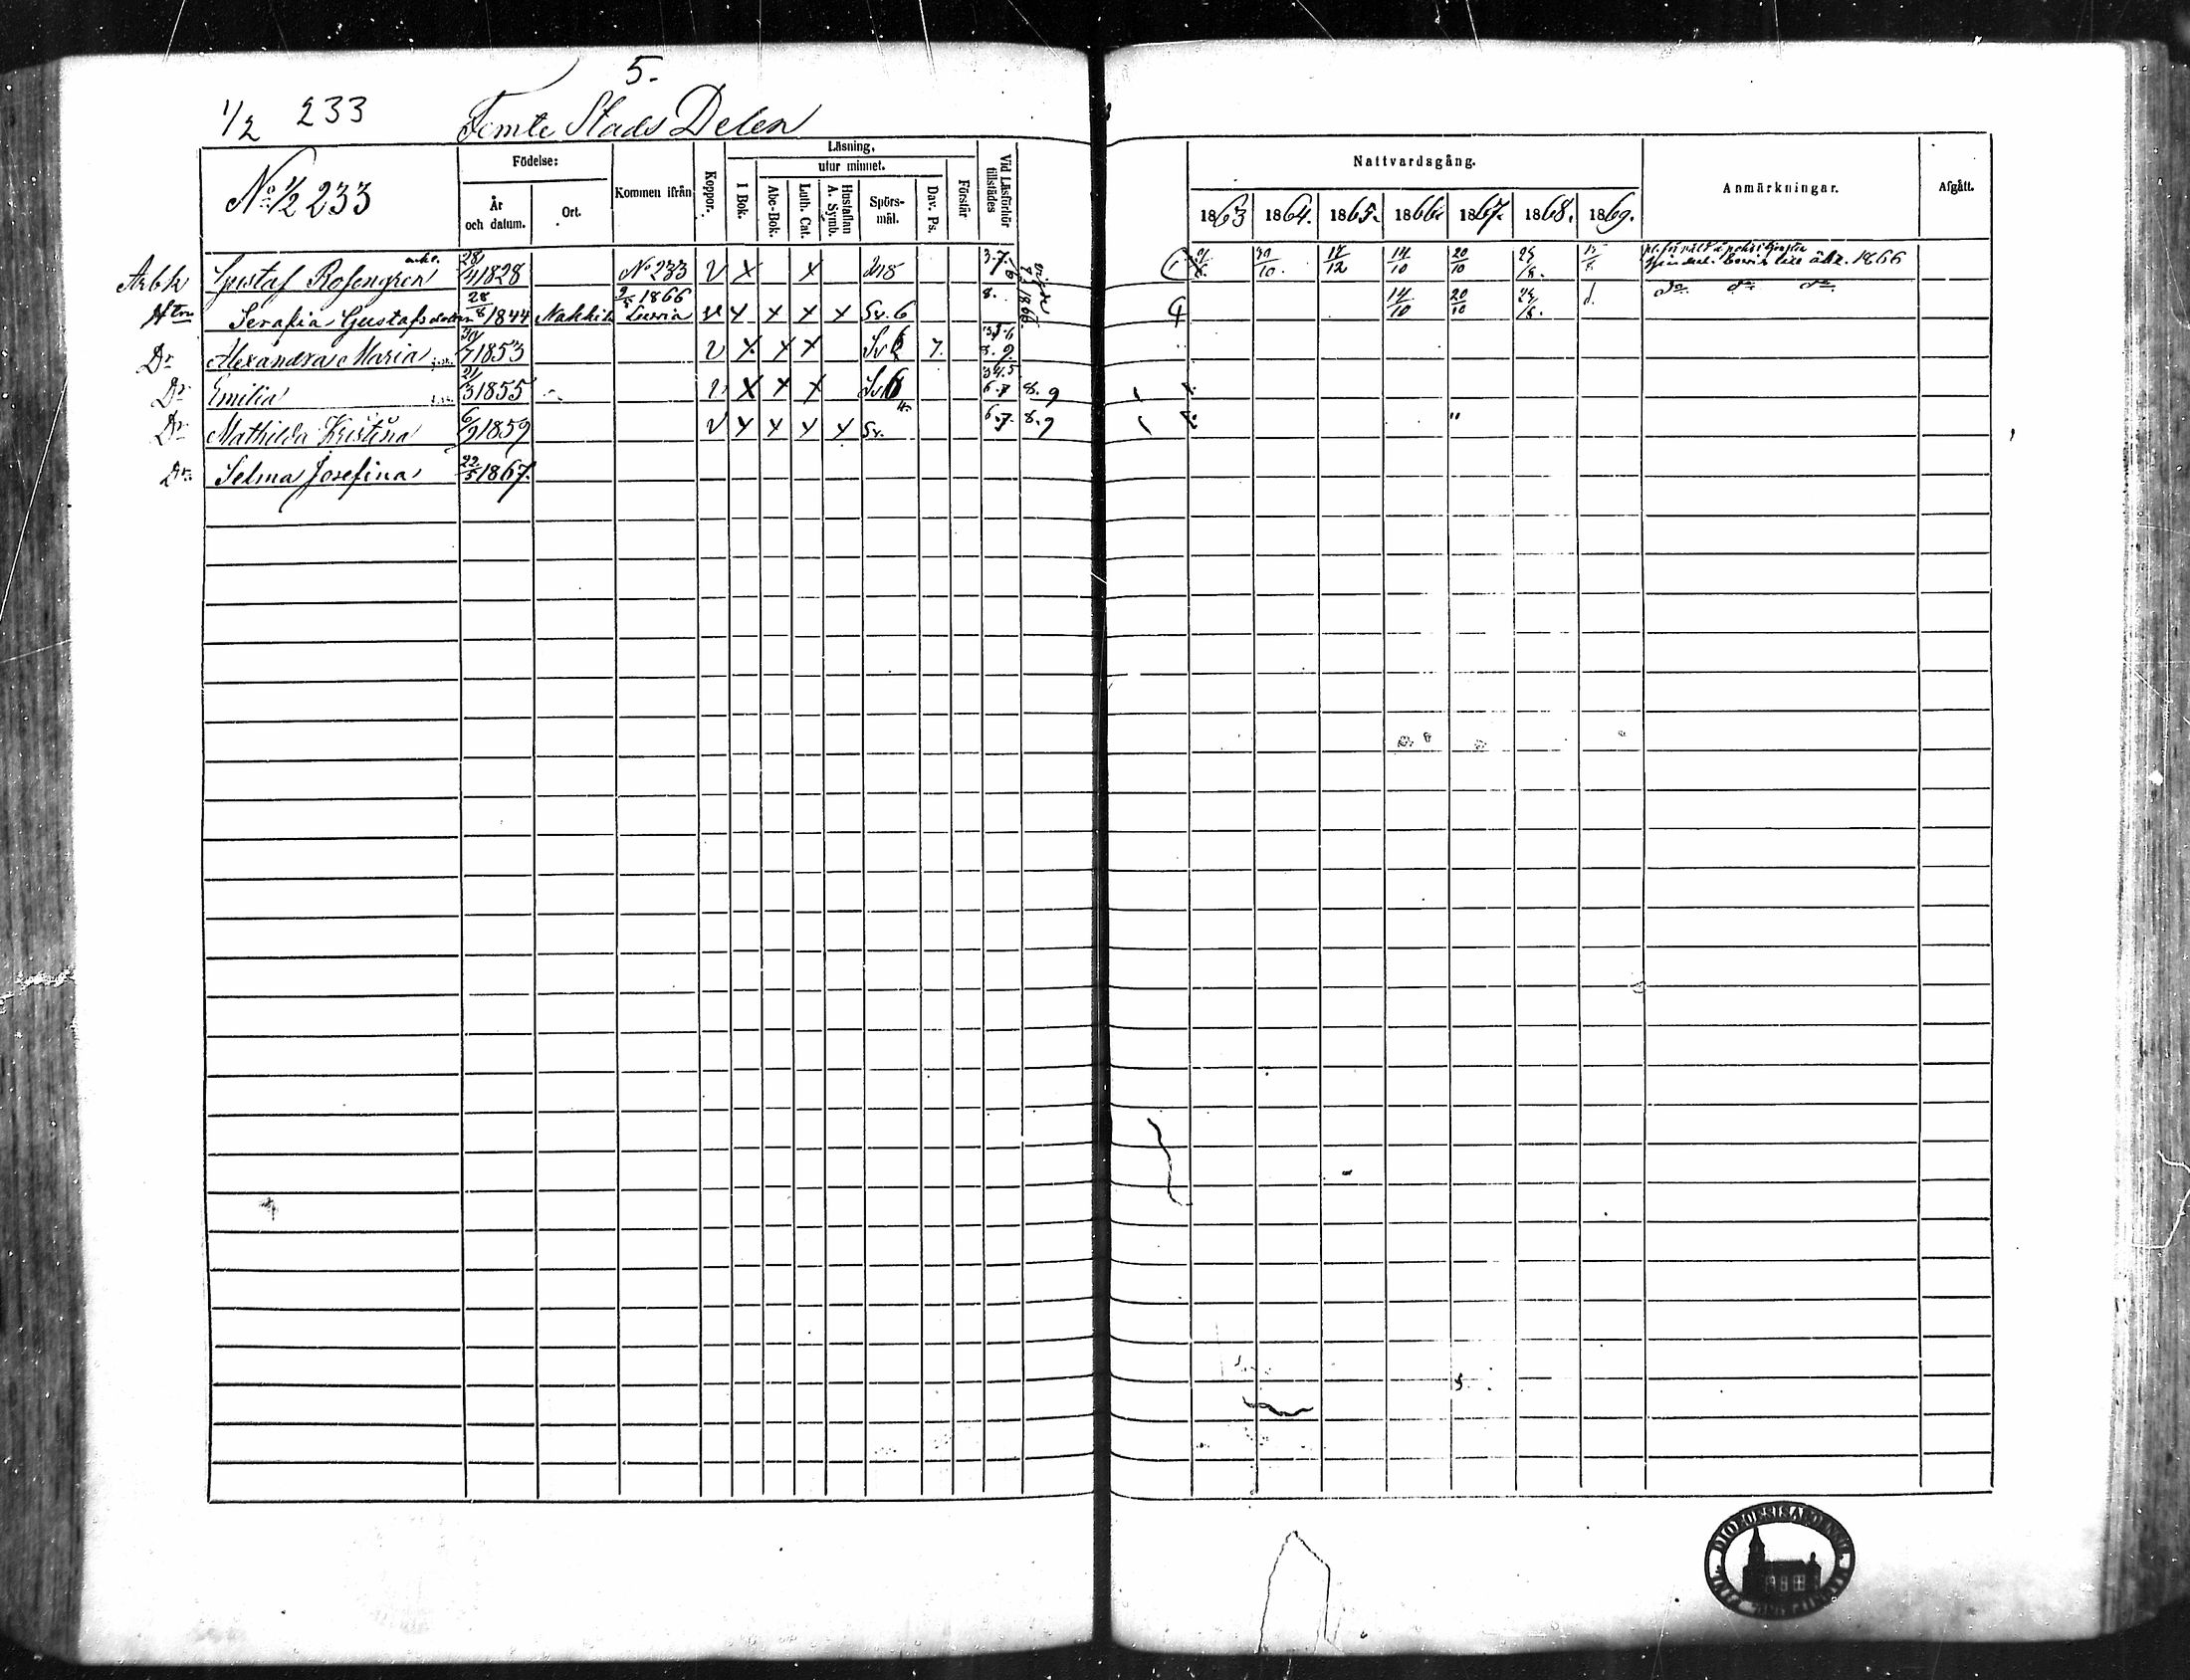 5.
1/2 233 Femte Stads Delen
No 1/2 233
Födelse:
År och datum.
Ort.
Kommen ifrån
Koppor.
Läsning,
I Bok.
utur minnet.
Abc-Bok.
Luth. Cat.
Hustaflan A. Symb.
Spörs-mål.
Dav. Ps.
Förstår
Vid Läsförhör tillstädes
Nattvardsgång.
1863 1864. 1865. 1866. 1867. 1868. 1869.
Anmärkningar.
Afgått.
Arbk Gustaf Rosengren enkl. 28/4 1828 No 233 V X X 30/10. 17/12 14/10 20/10 1866
Htru Serafia Gustafsdotter 28/8 1844 Nakkila 2/5 1866 Luvia X X X X Sv. 6 8. 14/10 20/10 do do do
Dr Alexandra Maria 30/7 1853 V X X X Sv 7. 8. 9.
Dr Emilia 21/3 1855 V X X X Sv 6 3 4. 5. 6. 7 8. 9
Dr Mathilda Kristina 6/9 1859 V X X X X Sv. 6. 7. 8. 9
Dr Selma Josefina 22/5 1867.